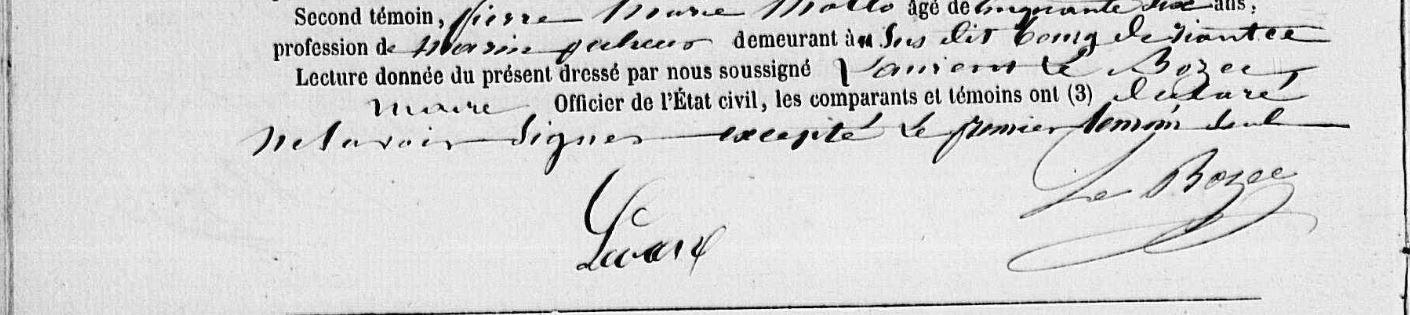 Second témoin, pierre Marie Mallo âgé de cinquante six ans,
profession de Marin pecheur demeurant à u sus dit bourg de riantec
Lecture donnée du présent dressé par nous soussigné Le Bozec
maire Officier de l'État civil, les comparants et témoins ont (3) declaré
ne savoir signer excepté le premier temoin seul
Le Bozec